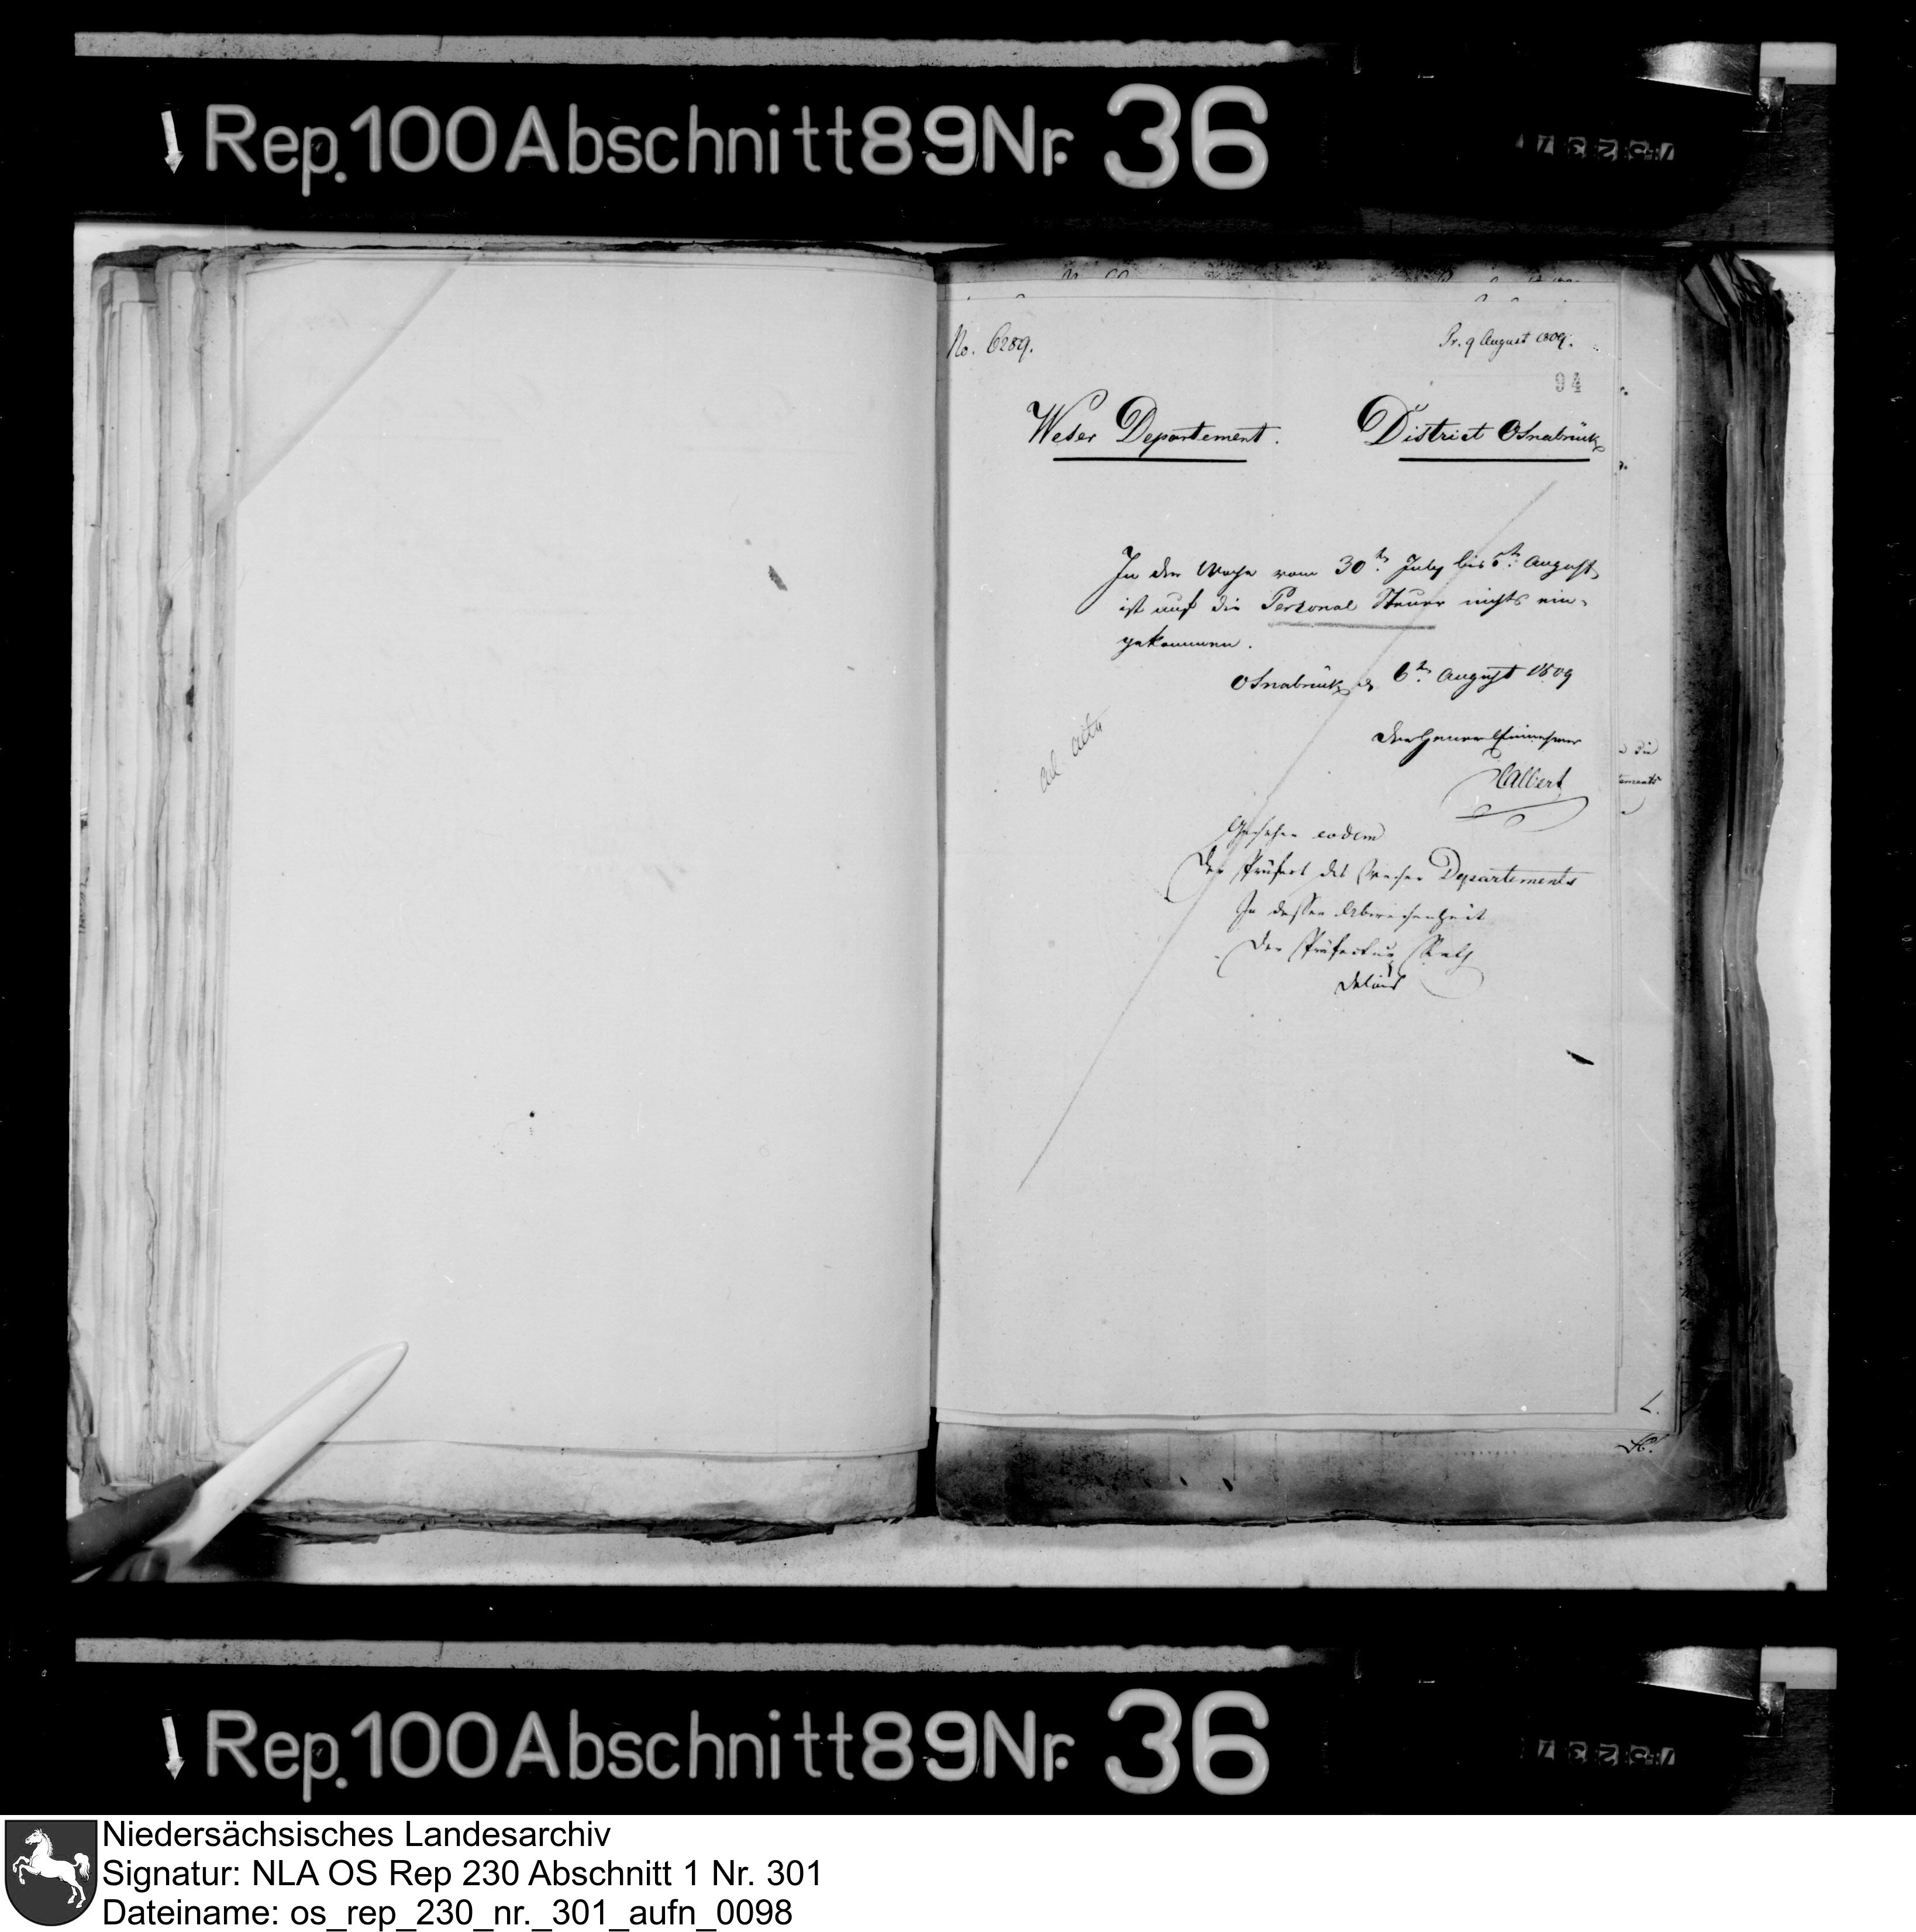 Rep. 100 Abschnitt 89 Nr. 36
No. 6289.
Pr. 9 August 1809.
94
Weser Departement.
District Osnabrück
In der Woche vom 30ten July bis 5ten August
ist auf die Personal Steuer nichts ein-
gekommen.
Osnabrück 6ten August 1809
Der Steuer Einnehmer
Albert
ad acta
Gesehen eodem
Der Präfect des Weser Departements
In dessen Abwesenheit
Der Präfectur Rath
Delius
Rep. 100 Abschnitt 89 Nr. 36
Niedersächsisches Landesarchiv
Signatur: NLA OS Rep 230 Abschnitt 1 Nr. 301
Dateiname: os_rep_230_nr._301_aufn_0098